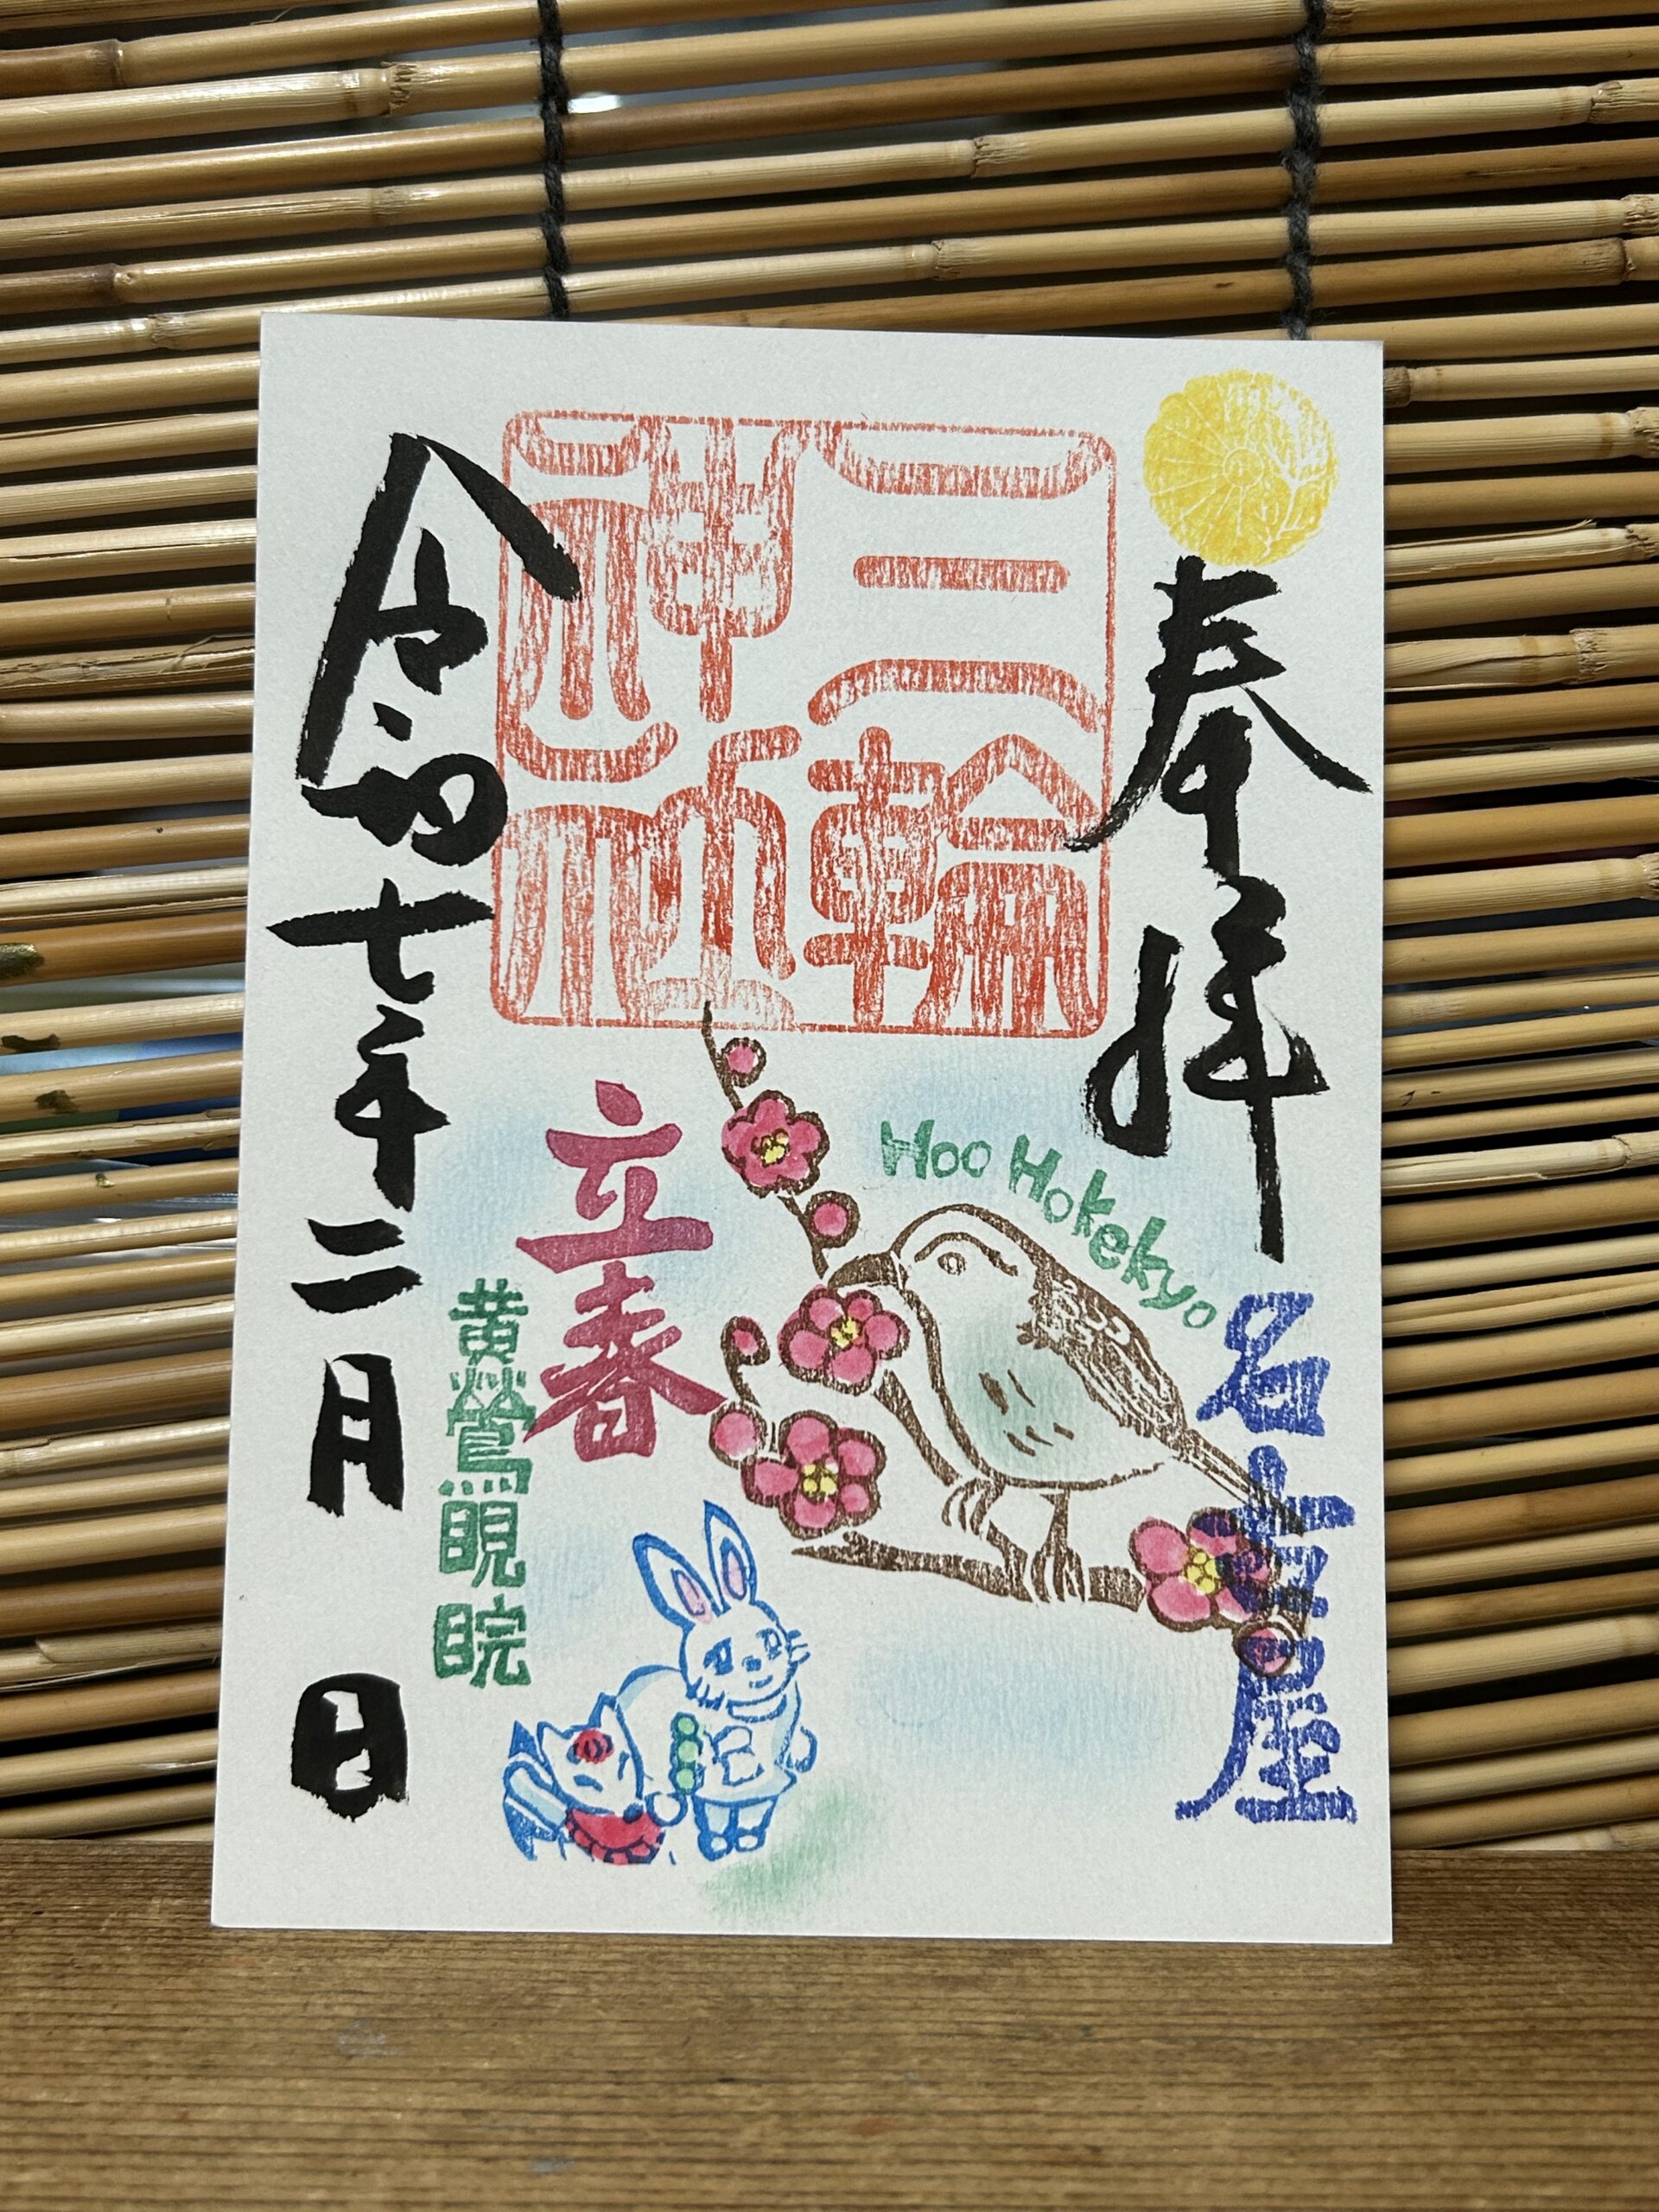 奉拝
名古屋
三輪
神社
Hoo Hokekyo
立春
黄鶯睍睆
令和七年二月 日